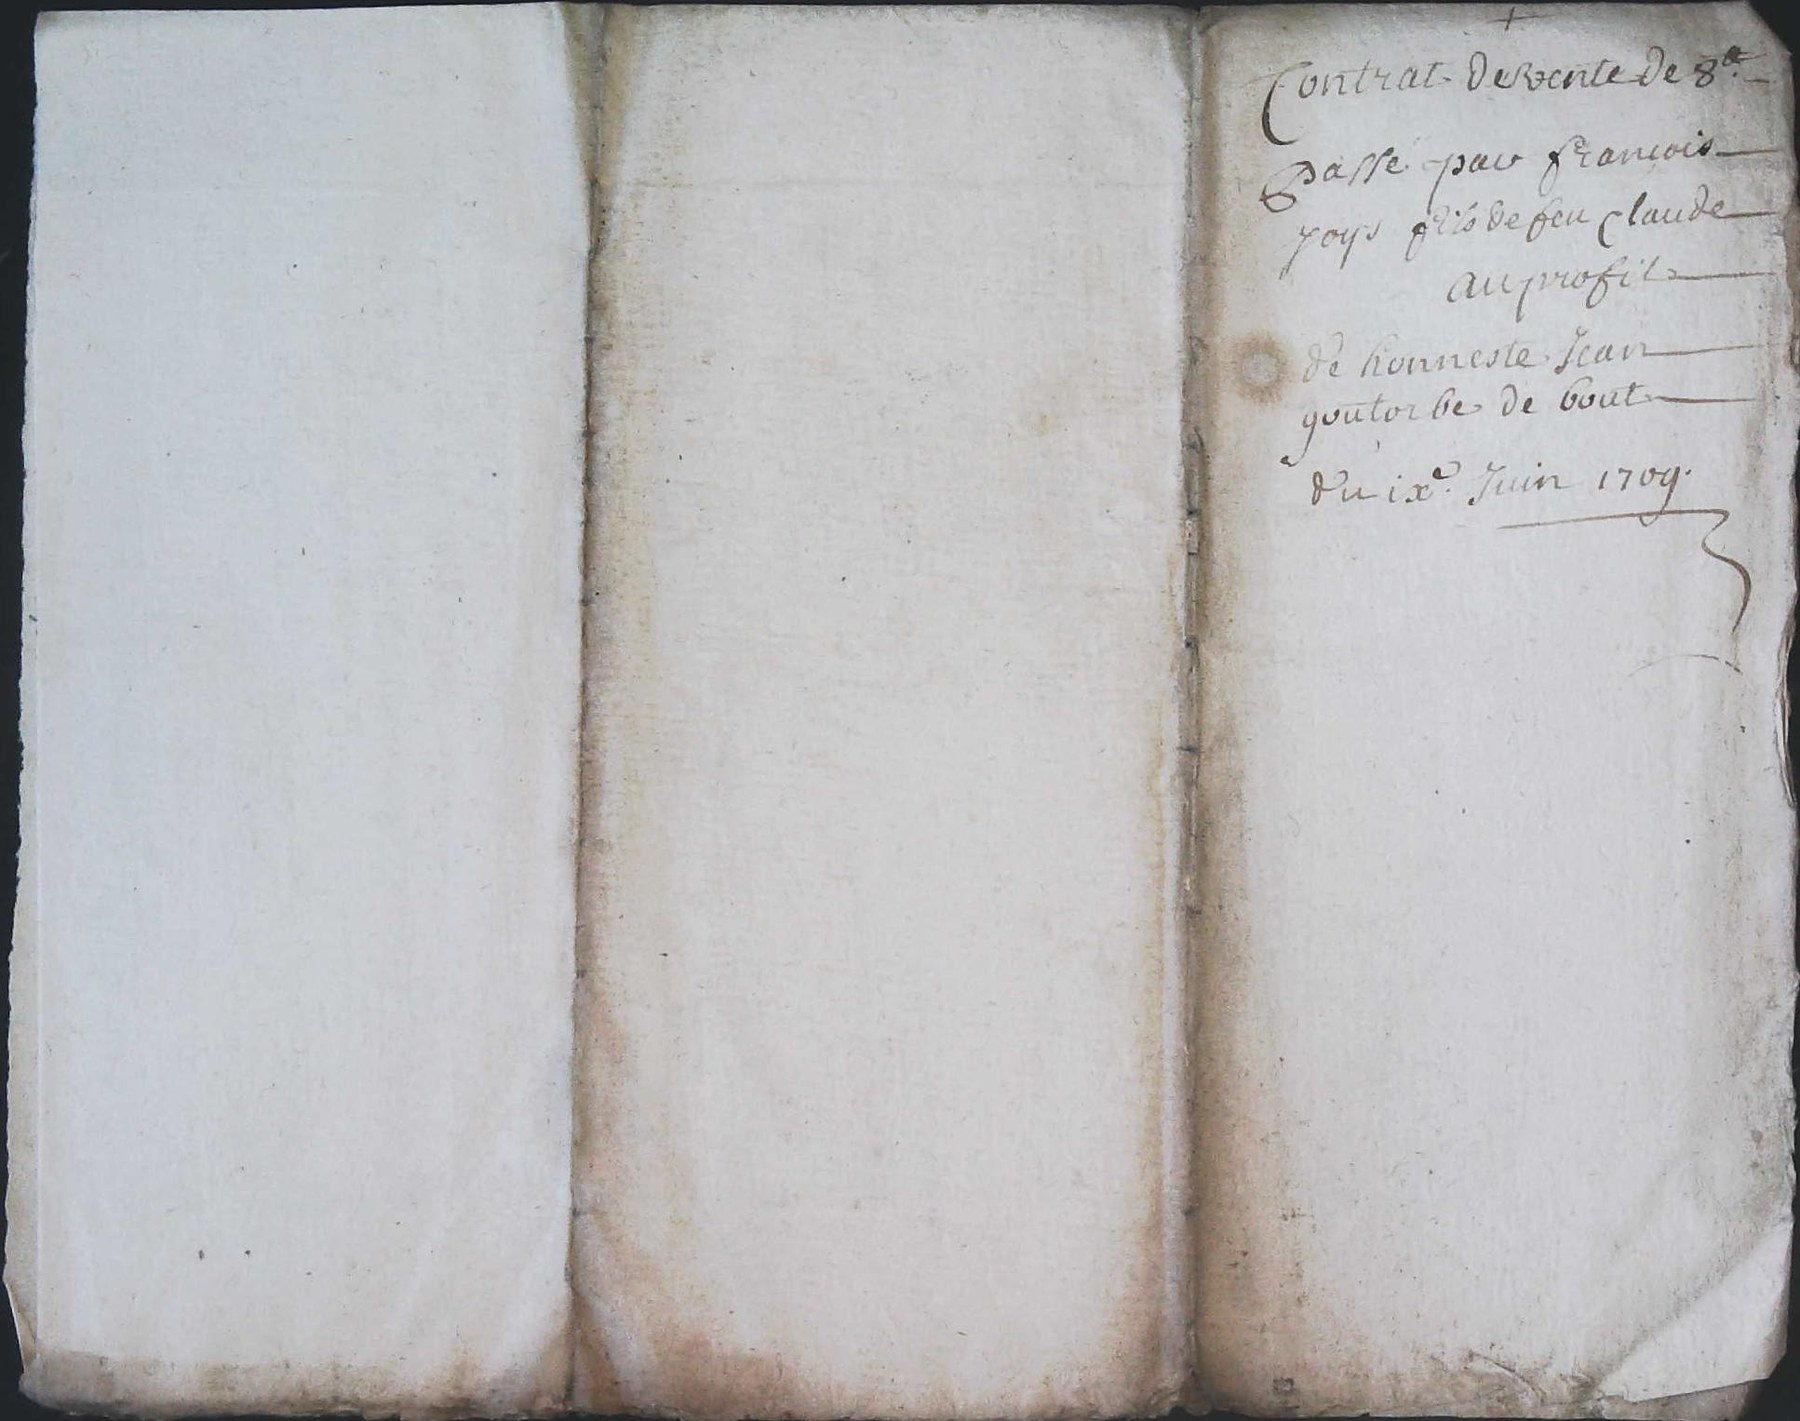 +
Contrat de vente de 8 tt
passé par françois
poys fils de feu Claude
au profit
de honneste Jean
goutorbe de bout
du ixe. Juin 1709.